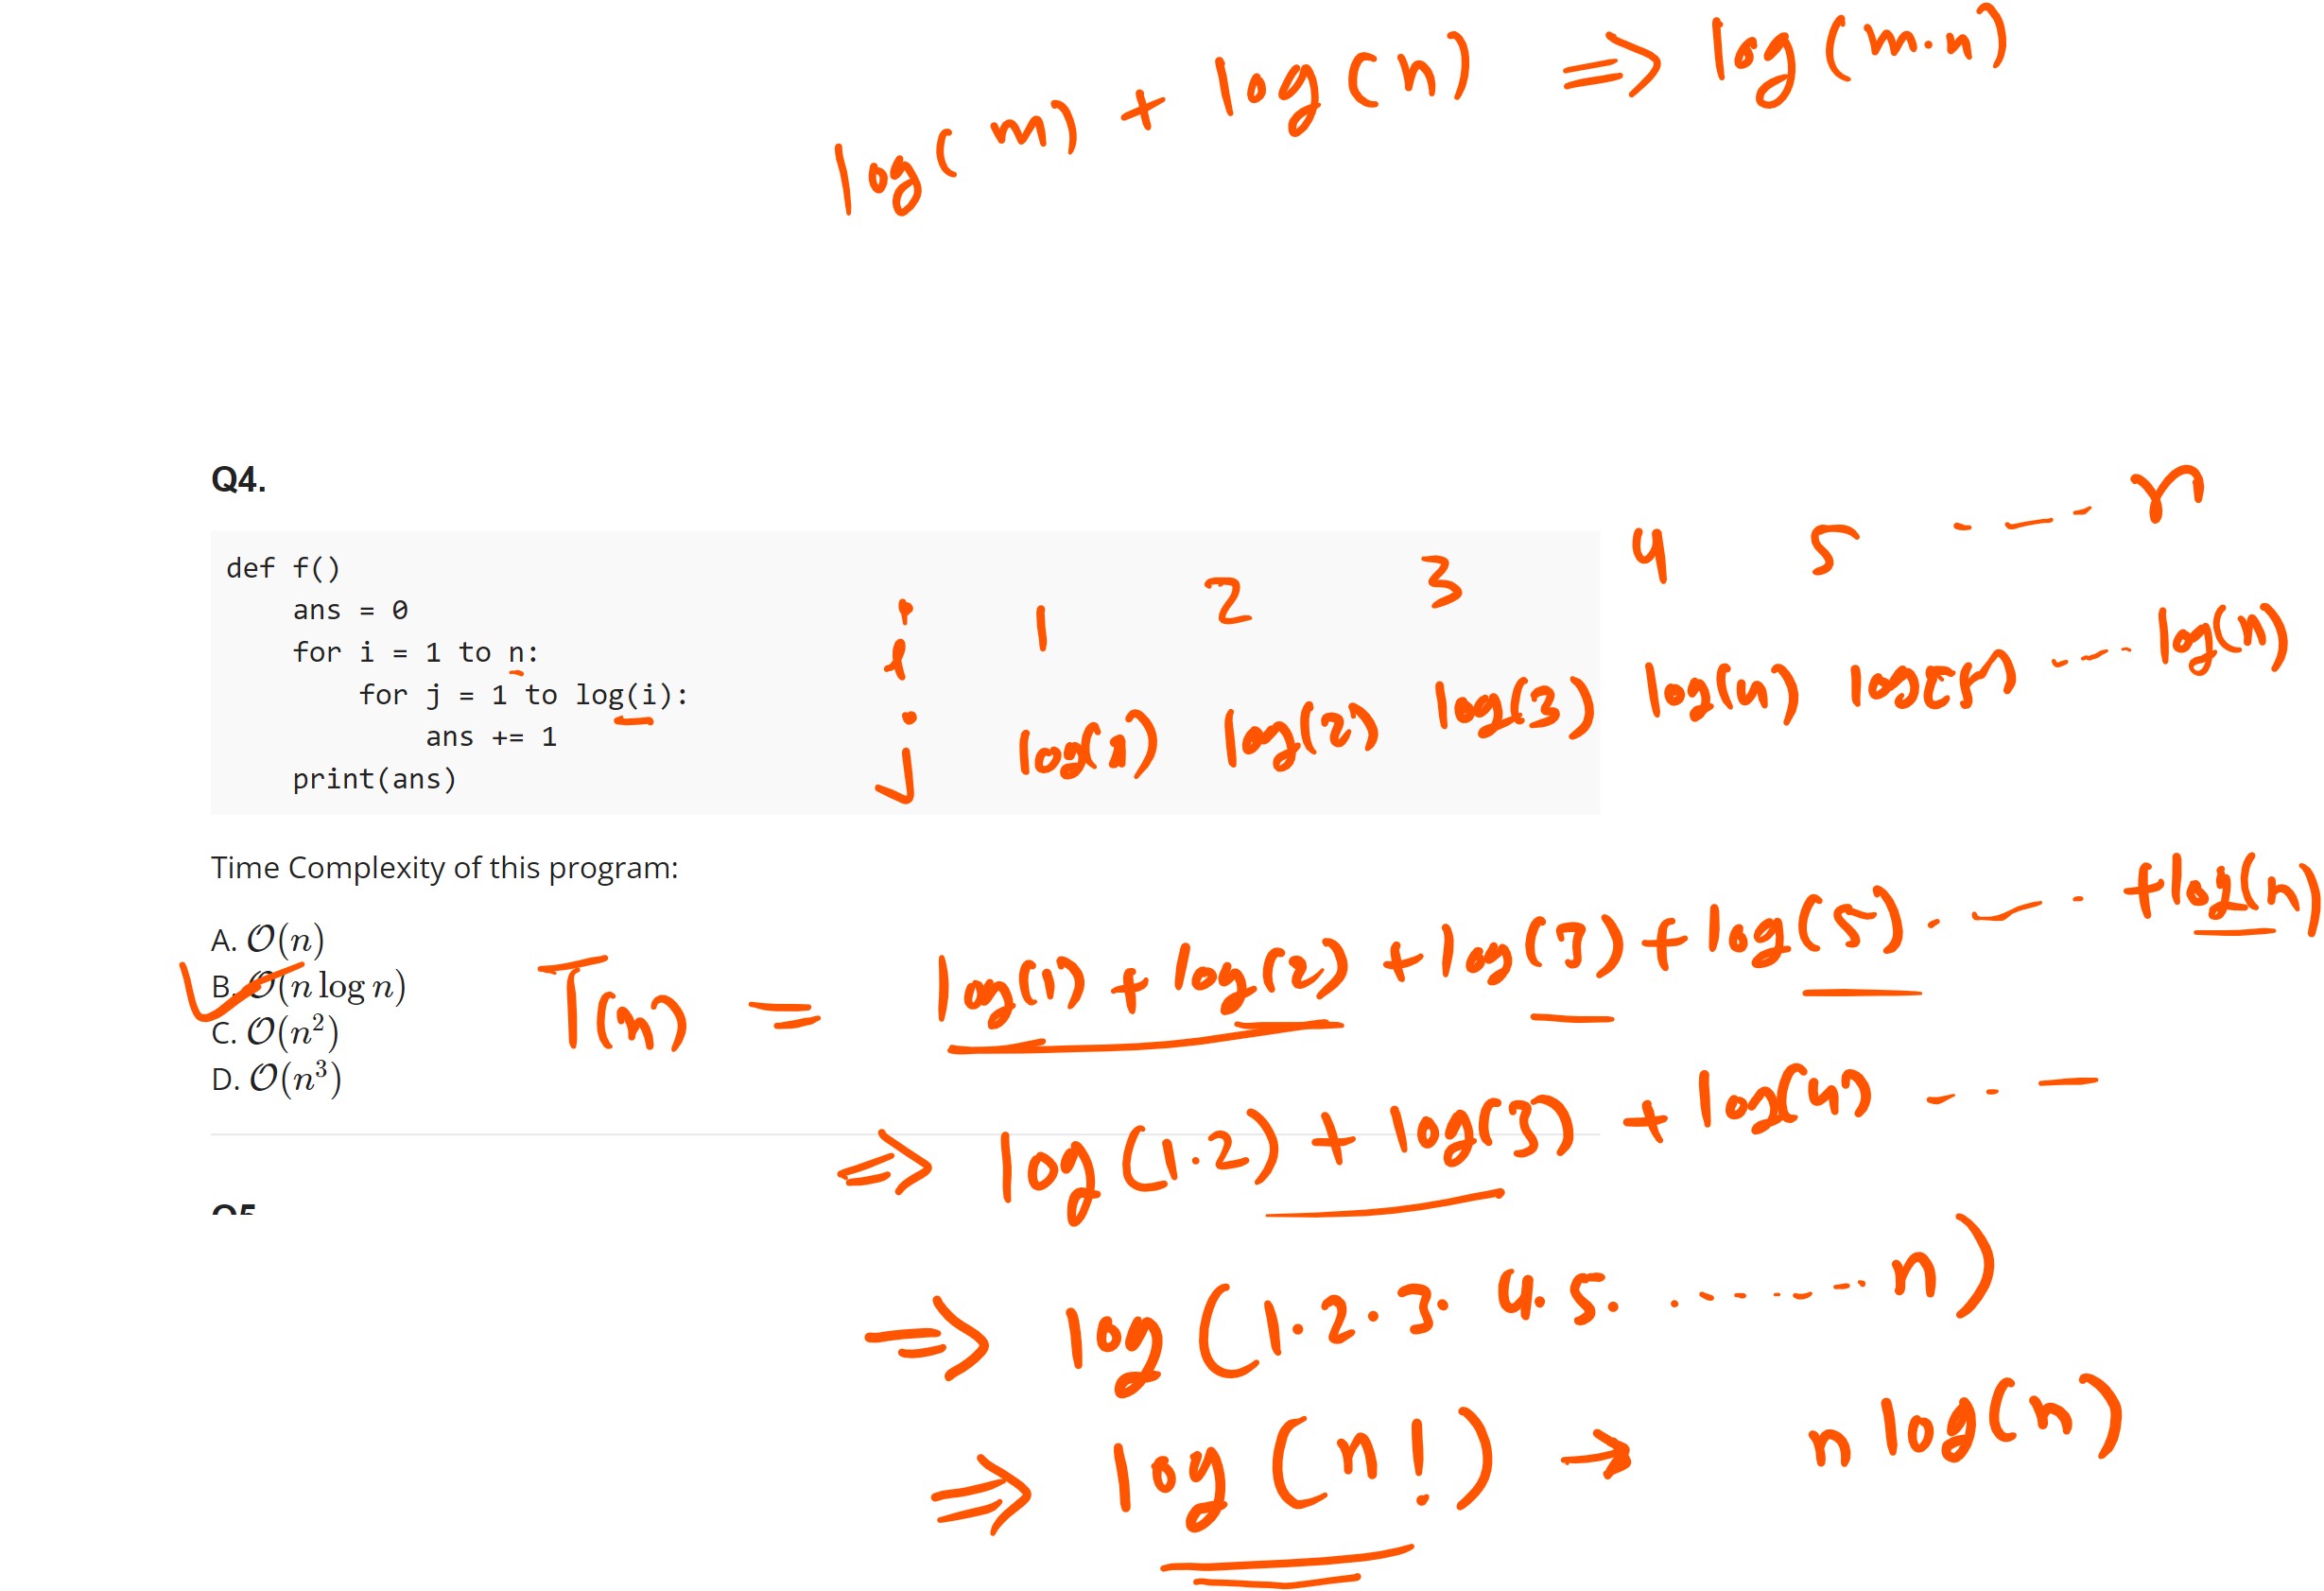 log(m) + log(n) ⇒ log(m·n)
Q4.
def f()
    ans = 0
    for i = 1 to n:
        for j = 1 to log(i):
            ans += 1
    print(ans)
i 1 2 3 4 5 ---- n
j log(1) log(2) log(3) log(4) log(5) ---- log(n)
Time Complexity of this program:
A. O(n)
B. O(n log n)
C. O(n²)
D. O(n³)
T(n) = log(1) + log(2) + log(3) + log(5) ---- + log(n)
⇒ log(1·2) + log(3) + log(4) ----
⇒ log(1·2·3·4·5· ------- n)
⇒ log(n!) → n log(n)
Q5